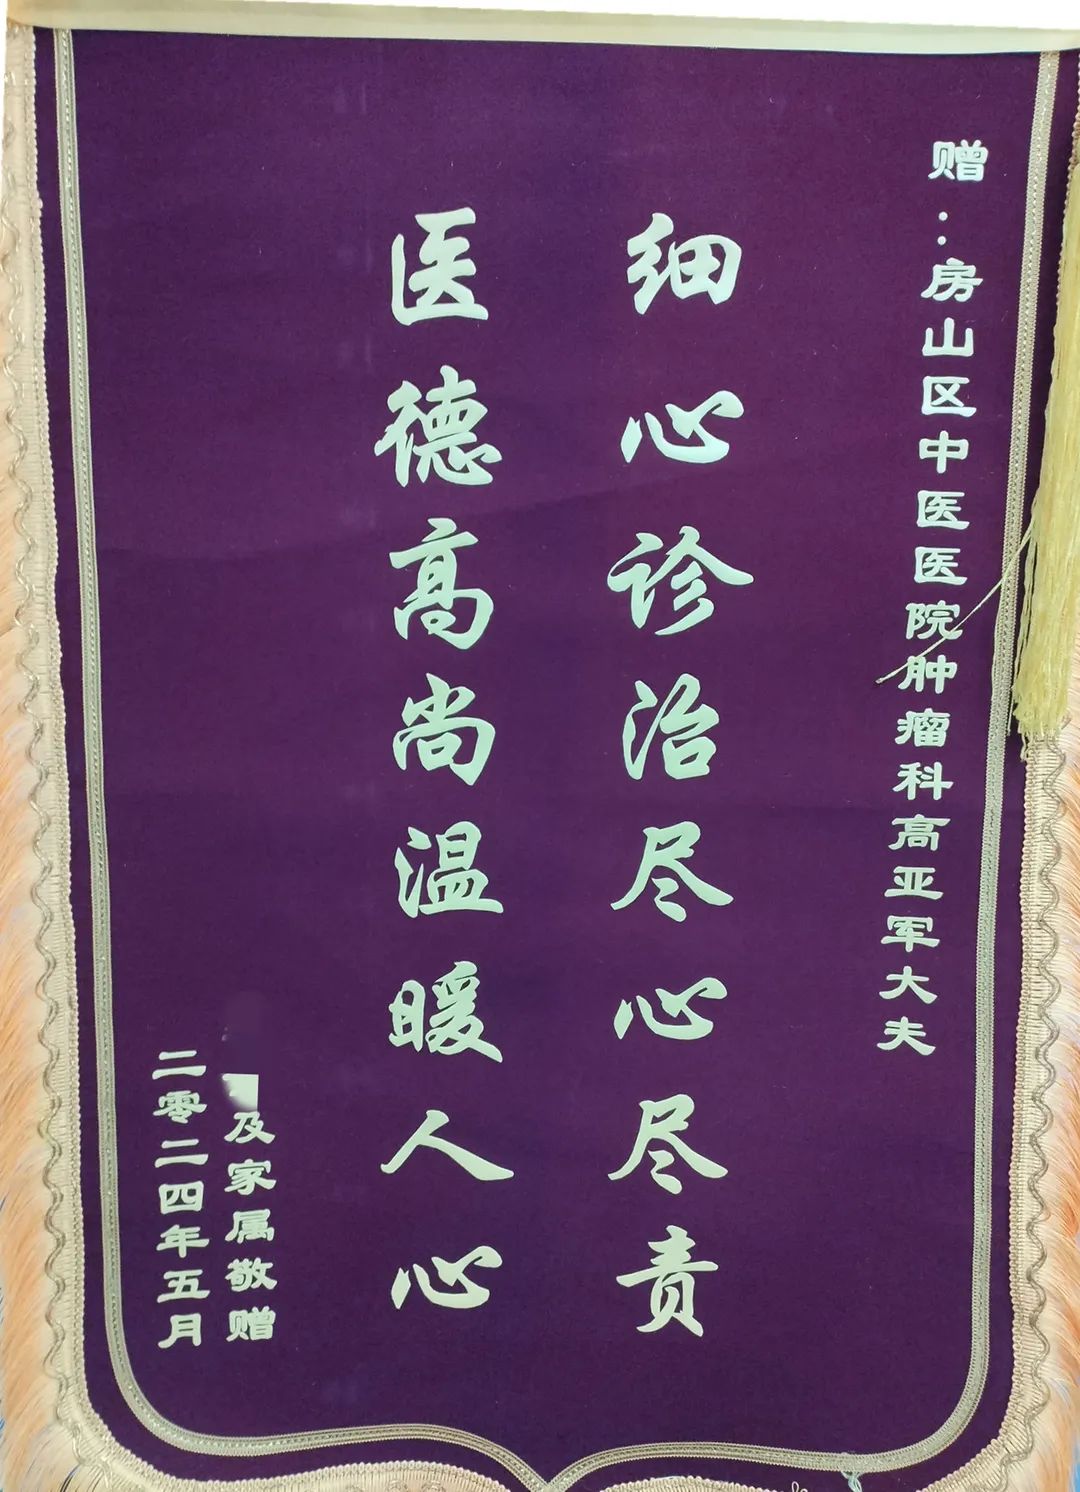 赠：房山区中医医院肿瘤科高亚军大夫
细心诊治尽心尽责
医德高尚温暖人心
及家属敬赠
二零二四年五月